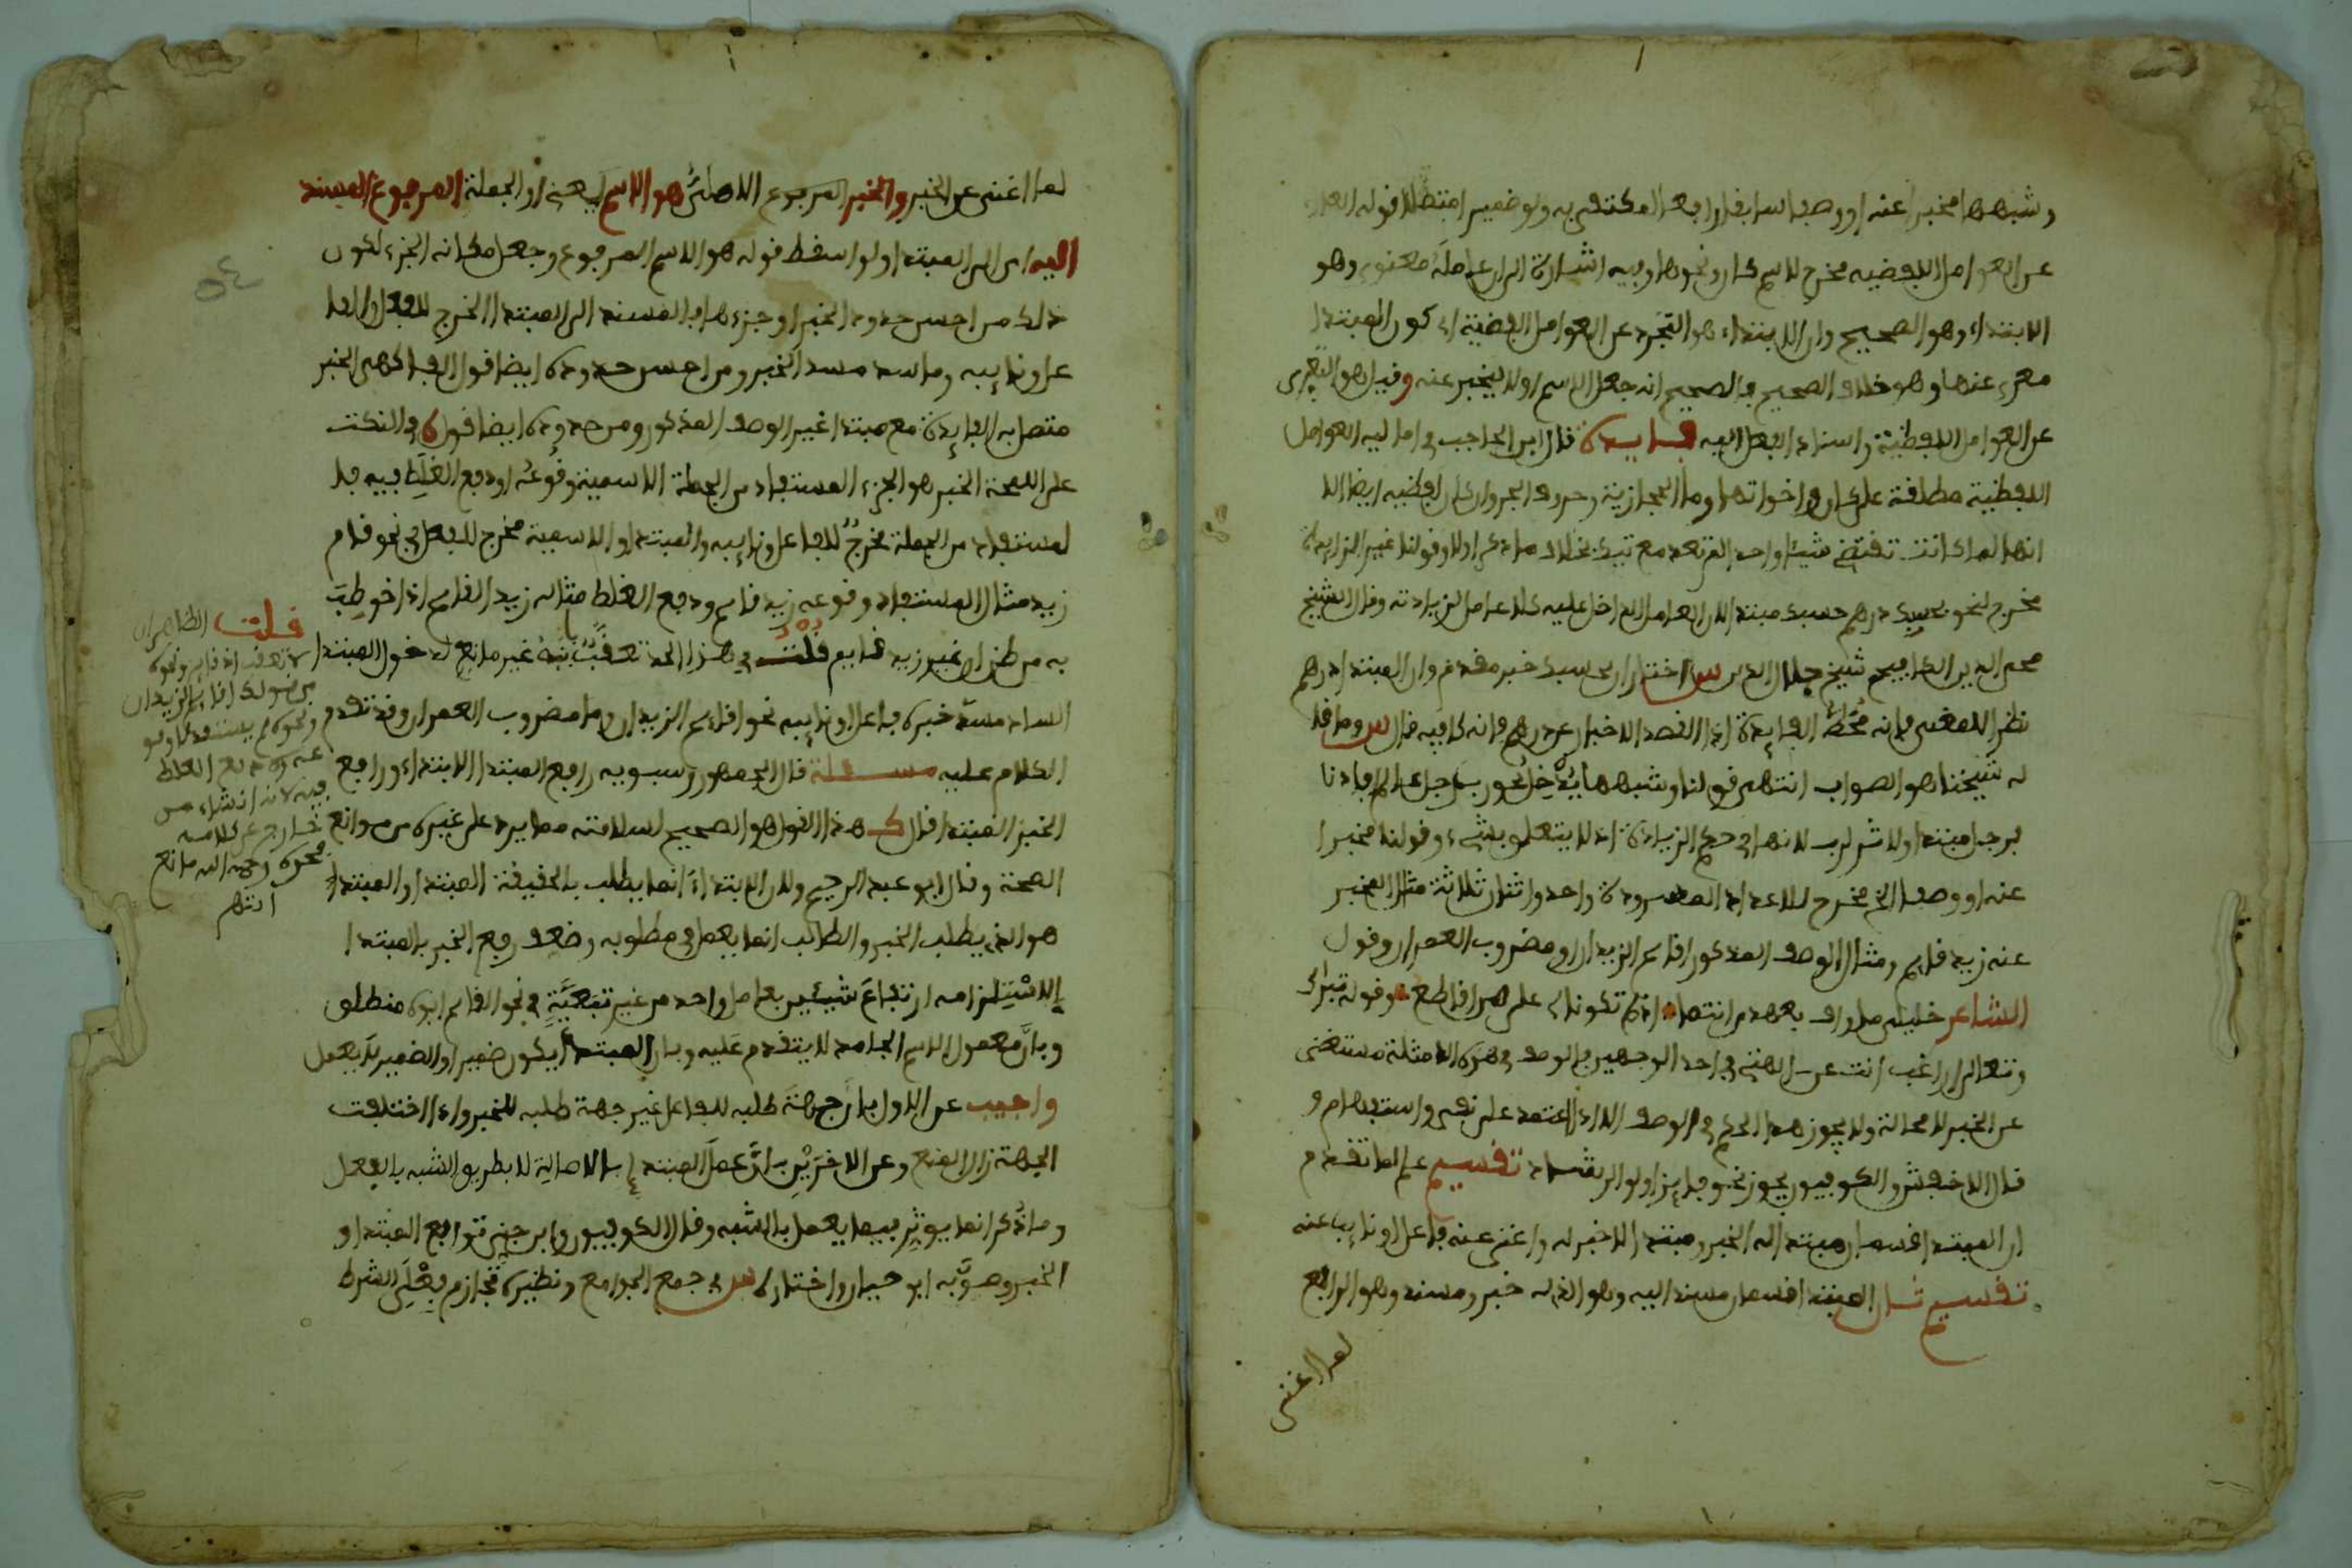 وشبهها مخبرا عنه او وصفا سابقا رافعا لمكتفى به ولو ضميرا منفصلا قوله العارى
عن العوامل اللفظيه مخرج لاسم كان ونحوها وفيه اشارة الى ان عامله معنوي وهو
الابتداء وهو الصحيح وان الابتداء هو التجرد عن العوامل اللفظية اي كون المبتدا
معرى عنها وهو خلاف الصحيح فالصحيح انه جعل الاسم اولا ليخبر عنه وقيل هو التعرى
عن العوامل اللفظية واسناد الفعل اليه فايدة قال ابن الحاجب في اماليه العوامل
اللفظية مطلقة على كان واخواتها وما الحجازية وحروف الجر وان كان لفظيه ايضا الا
انها لما كانت تقتضي شيئا واحدا لم تعد مع تيك بخلاف ما ذكر اولا وقولنا غير الزايدة
مخرج لنحو بحسبك درهم فحسبك مبتدا لان العامل الداخل عليه كلا عامل لزيادته وقال الشيخ
محي الدين الكافيجي شيخ جلال الدين س اختار ان بحسبك خبر مقدم وان المبتدا درهم
نظرا للمعنى فانه محط الفايدة اذ القصد الاخبار عن درهم فانه كافيه قال س وما قا
له شيخنا هو الصواب انتهى قولنا وشبهها يدخل نحو رب رجل عالم افادنا
فرجل مبتدا ولا اثر لرب لانها في حكم الزيادة اذ لا يتعلق بشيء وقولنا مخبرا
عنه او وصفا الخ مخرج للاعداد المسرودة واحد واثنان ثلاثة مثال المخبر
عنه زيد قايم ومثال الوصف المذكور اقايم الزيدان او مضروب العمران وقول
الشاعر خليلي ما واف بعهدى انتما اذا لم تكونا لي على من اقاطع وقوله تبارك
وتعالى اراغب انت عن الهتي في احد الوجهين فالوصف في هذه الامثلة مستغنى
عن الخبر لا محالة ولا يجوز هذا الحكم في الوصف الا اذا اعتمد على نفي او استفهام و
قال الاخفش والكوفيون يجوز نحو فايز اولوا الرشاد تقسيم علم مما تقدم
ان المبتدا قسمان مبتدا له الخبر ومبتدا لا خبر له واغنى عنه فاعل او نايبا عنه
تقسيم ثان المبتدا قسمان مسند اليه وهو الذي له خبر ومسند وهو الرافع
لما اغنى
لما اغنى عن الخبر والخبر المرفوع الاصلي هو الاسم يعني او الجملة المرفوع المسند
اليه اي الى المبتدا ولو اسقط قوله هو الاسم المرفوع وجعل مكانه الجزء لكون
ذلك من احسن حدود الخبر او جزءها فالمسند الى المبتدا الخرج للفعل والفا
عل ونايبه وما سد مسد الخبر ومن احسن حدوده ايضا قول الفاكهي الخبر
متصل به الفايدة مع مبتدا غير الوصف المذكور ومن حدوده ايضا قول في النكت
على اللمحة الخبر هو الجزء المستفاد من الجملة الاسمية وقوعه او دفع الغلط فيه فا
لمستفاد من الجملة مخرج للفاعل ونايبه والمبتدا والاسمية مخرج للفعل في نحو قام
زيد مثال المستفاد وقوعه زيد قايم ودفع الغلط مثاله زيد القايم اذا خوطب
به من ظن ان غير زيد قايم قلت في هذا الحد تعقب فانه غير مانع لدخول المبتدا
الساد مسد خبره فاعل او نايبه نحو اقايم الزيدان وما مضروب العمران وقد تقدم
الكلام عليه مسئلة قال الجمهور وسيبويه رافع المبتدا الابتداء ورافع
الخبر المبتدا قال ك هذا القول هو الصحيح لسلامته مما يرد على غيره من موانع
الصحة وقال ابو عبد الرحيم ولان الابتداء انما يطلب بالحقيقة المبتدا والمبتدا
هو الذي يطلب الخبر والطالب انما يعمل في مطلوبه وضعف رفع الخبر بالمبتدا
لاستلزامه ارتفاع شيئين بعامل واحد من غير تبعية في نحو القايم ابوه منطلق
وبان معمول الاسم الجامد لا يتقدم عليه وبان المبتدا يكون ضميرا والضمير لا يعمل
واجيب عن الاول بان جهة طلبه للفاعل غير جهة طلبه للخبر واذا اختلفت
الجهة زال المنع وعن الاخرين بان عمل المبتدا بالاصالة لا بطريق الشبه بالفعل
وما ذكر انما يوثر فيما يعمل بالشبه وقال الكوفيون وابن جني ترافع المبتدا و
الخبر وصوبه ابو حيان واختاره س في جمع الجوامع ونظيره تجازم فعلى الشرط
قلت الظاهر ان
لا تعقب اذ قايم ونحوه
من قولك اقايم الزيدان
ونحوه لم يستفد وقو
عه ولا دفع الغلط
فيه لانه انشاء
خارج عن كلامه
رحمه الله مانع
انتهى
٥٤